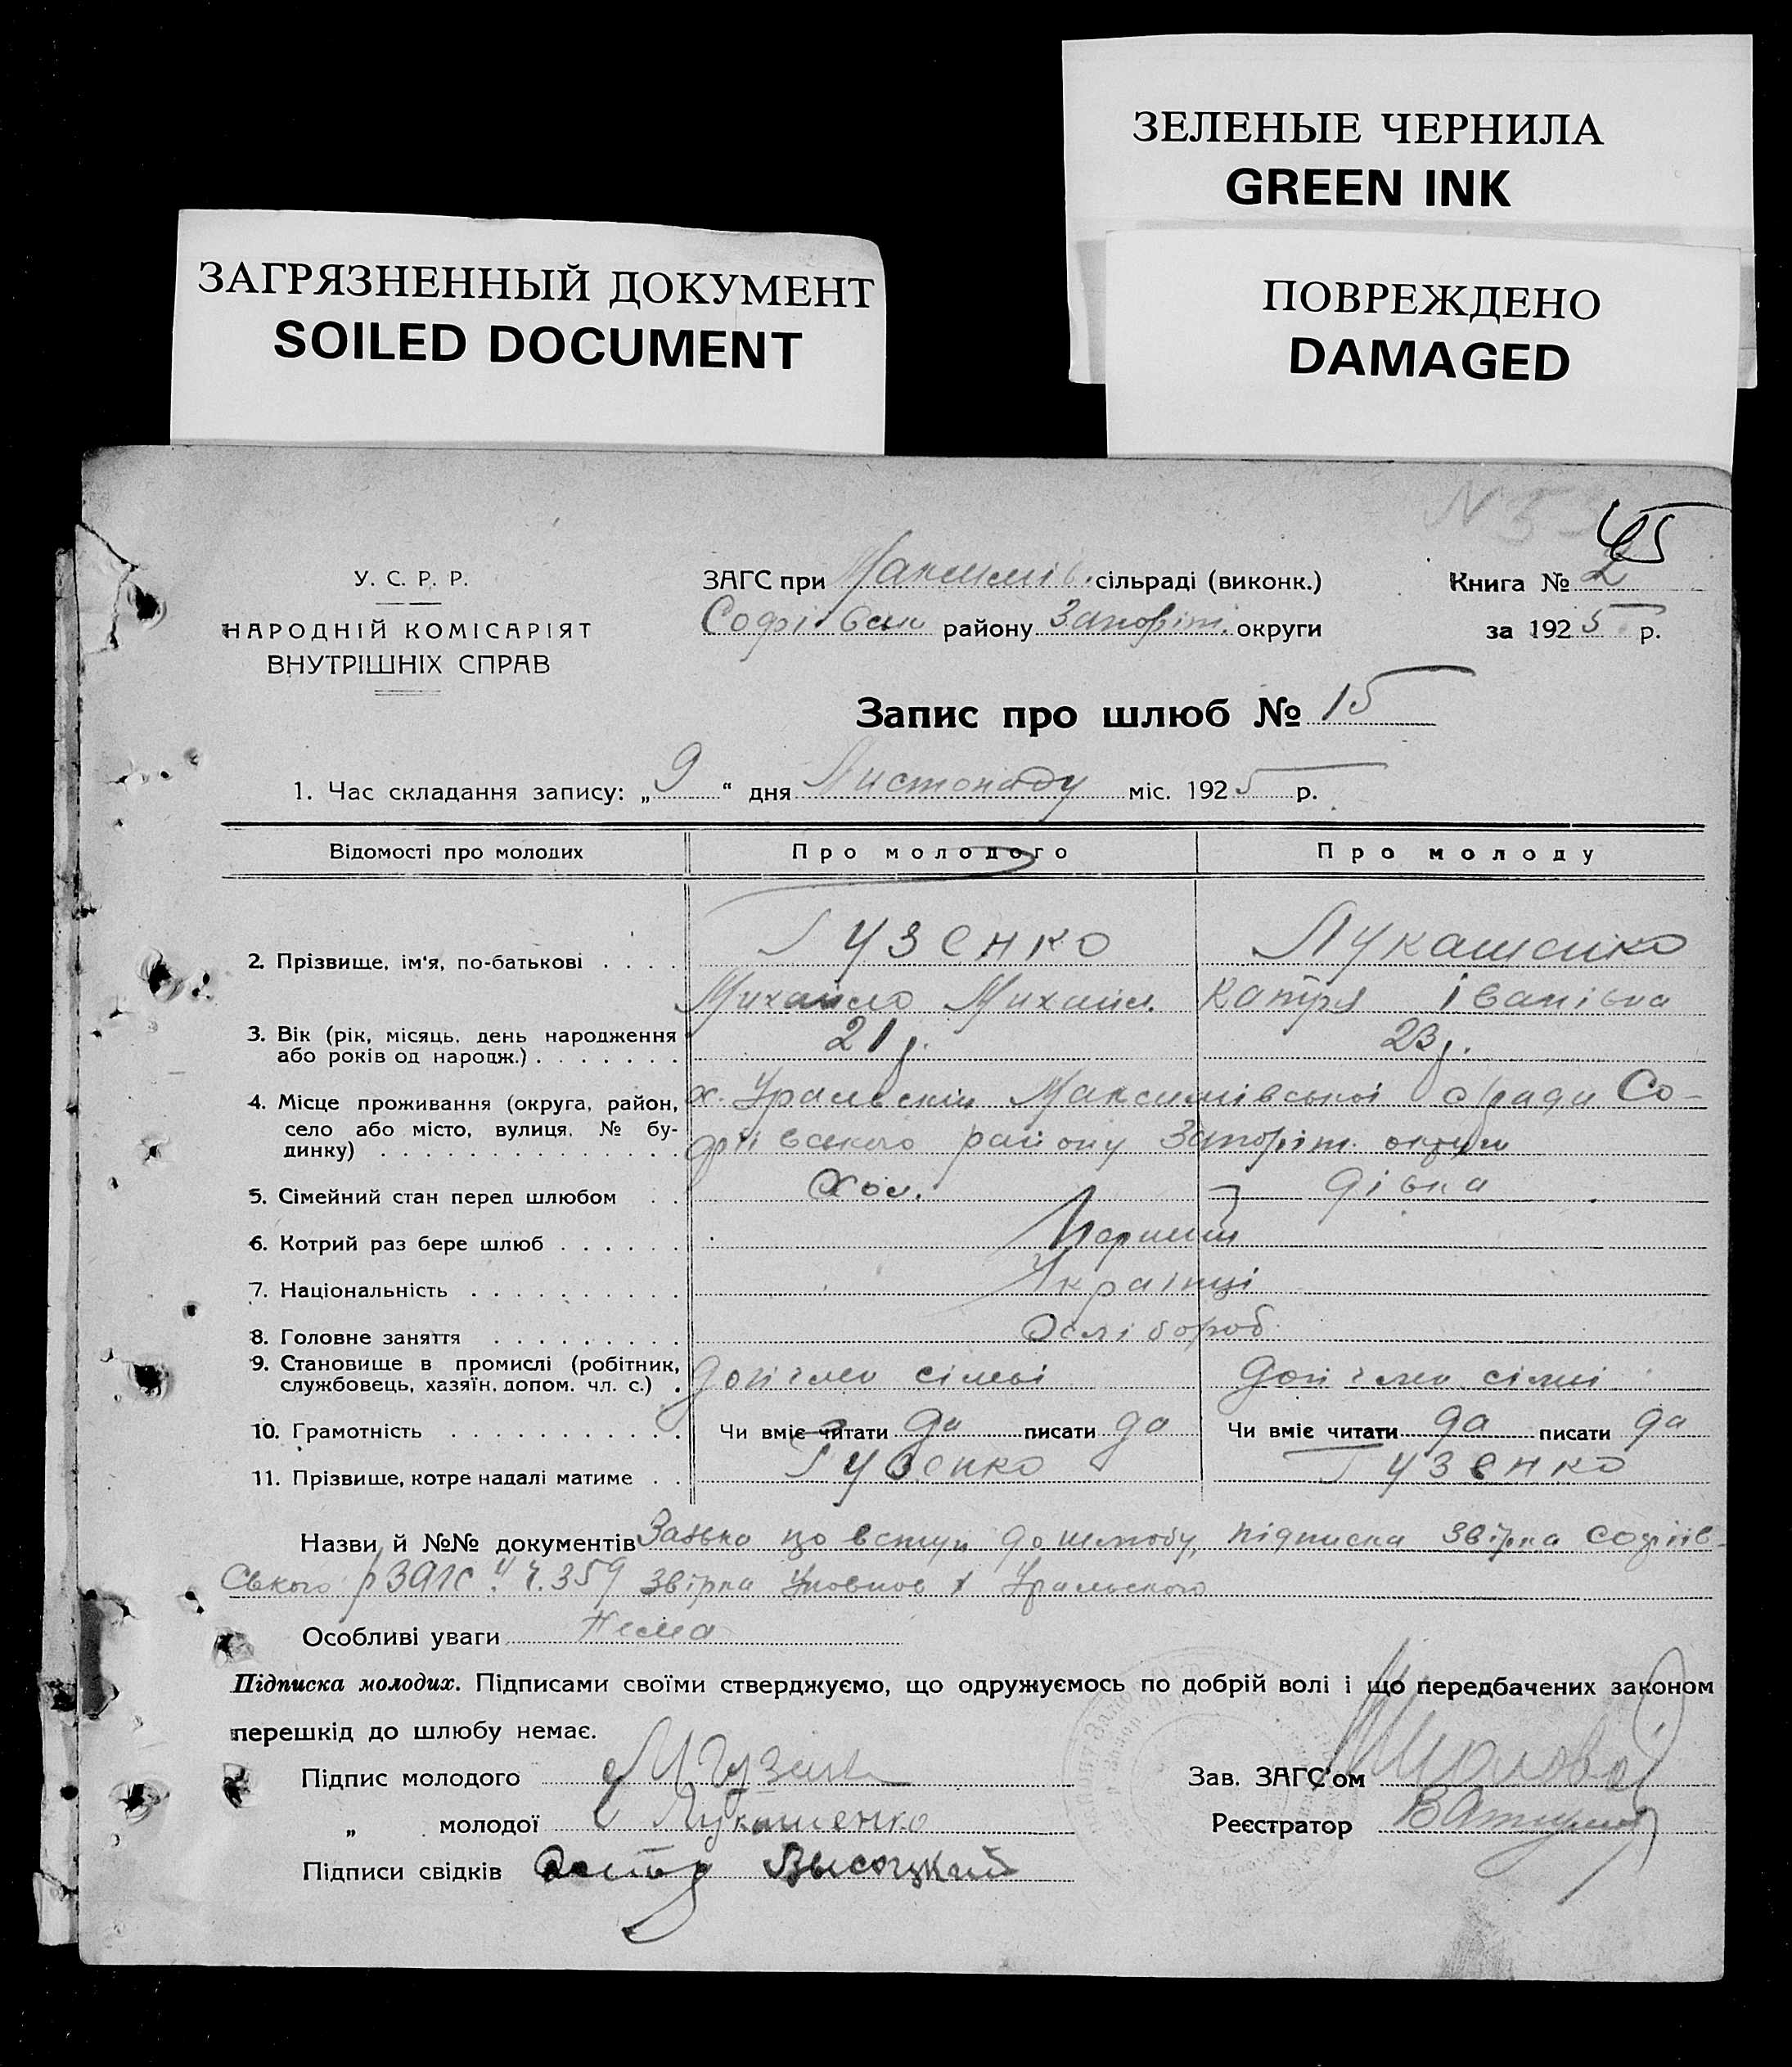 ЗЕЛЕНЫЕ ЧЕРНИЛА
GREEN INK
ЗАГРЯЗНЕННЫЙ ДОКУМЕНТ
SOILED DOCUMENT
ПОВРЕЖДЕНО
DAMAGED
N 53
45
У. С. Р. Р.
НАРОДНІЙ КОМІСАРІЯТ
ВНУТРІШНІХ СПРАВ
ЗАГС при Максимів. сільраді (виконк.)
Софіівськ району Запоріж. округи
Книга № 2
за 1925 р.
Запис про шлюб № 15
1. Час складання запису: „ 9 “ дня Листопаду міс. 1925 р.
Відомості про молодих Про молодого Про молоду
2. Прізвище, ім'я, по-батькові . . . . Гузенко Лукашенко
Михайло Михайл. Катря Іванівна
3. Вік (рік, місяць, день народження 21 р. 23 р.
або років од народж.) . . . . . . .
4. Місце проживання (округа, район, х. Уральский Максимівської с/ради Со-
село або місто, вулиця, № бу- фіівського району Запоріж. округи
динку) . . . . . . . . . . . . . .
5. Сімейний стан перед шлюбом . . Хол. дівка
6. Котрий раз бере шлюб . . . . . . Перший
7. Національність . . . . . . . . . . Українці
8. Головне заняття . . . . . . . . . Хлібороб
9. Становище в промислі (робітник, допічлен сімьі допічлен сімьі
службовець, хазяїн, допом. чл. с.) .
10. Грамотність . . . . . . . . . . . Чи вміє читати да писати да Чи вміє читати да писати да
11. Прізвище, котре надалі матиме . . Гузенко Гузенко
Назви й №№ документів Заявка по вступ до шлюбу, підписка звірка Софіів-
ського рЗАГС ч. 359 звірка Уповнов х Уральского
Особливі уваги Нема
Підписка молодих. Підписами своїми стверджуємо, що одружуємось по добрій волі і що передбачених законом
перешкід до шлюбу немає.
Підпис молодого М Гузенко Зав. ЗАГС'ом
„ молодої Лукашенко Реєстратор
Підписи свідків Высоцкий